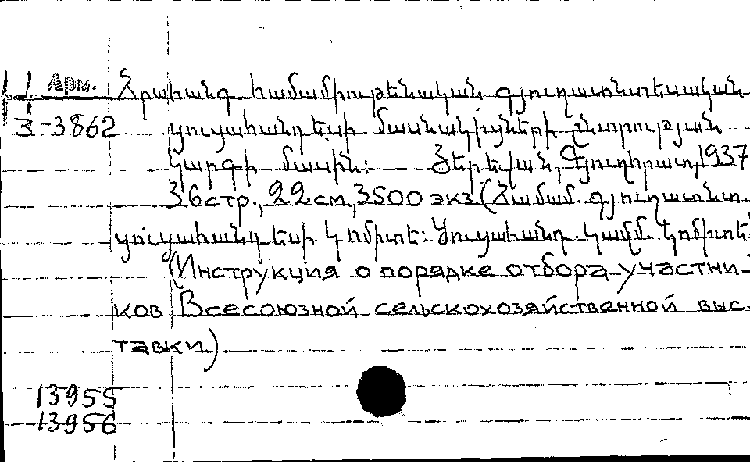 Арм. Հրահանգ համամիութենական գյուղատնտեսական
З-3862 ցուցահանդեսի մասնակիցների ընտրության
կարգի մասին: Յերեվան, Գյուղհրատ, 1937
36 стр., 22 см, 3500 экз. (Համամ. գյուղատնտ.
ցուցահանդեսի կոմիտե: Ցուցահանդ. կազմ. կոմիտե
(Инструкция о порядке отбора участни-
ков Всесоюзной сельскохозяйственной выс-
тавки)
13955
13956